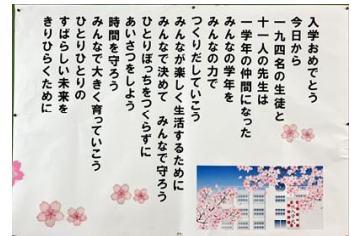 入学おめでとう
今日から
一九四名の生徒と
十一人の先生は
一学年の仲間になった
みんなの学年を
みんなの力で
つくりだしていこう
みんなが楽しく生活するために
みんなで決めて　みんなで守ろう
ひとりぼっちをつくらずに
あいさつをしよう
時間を守ろう
みんなで大きく育っていこう
ひとりひとりの
すばらしい未来を
きりひらくために